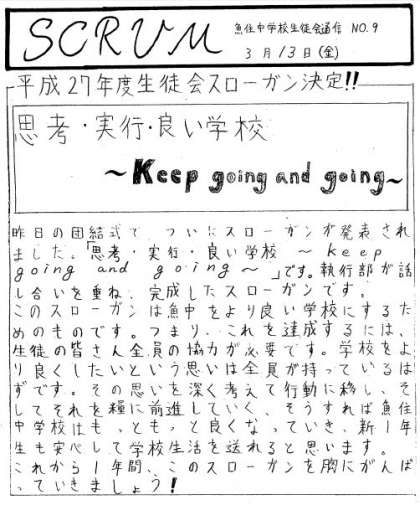 SCRUM
魚住中学校生徒会通信 NO.9
3月13日(金)
平成27年度生徒会スローガン決定!!
思考・実行・良い学校
~Keep going and going~
昨日の団結式で、ついにスローガンが発表され
ました。「思考・実行・良い学校 ~ keep
going and going~ 」です。執行部が話
し合いを重ね、完成したスローガンです。
このスローガンは魚中をより良い学校にするた
めのものです。つまり、これを達成するには、
生徒の皆さん全員の協力が必要です。学校をよ
り良くしたいという思いは全員が持っているは
ずです。その思いを深く考えて行動に移し、そ
してそれを糧に前進していく、そうすれば魚住
中学校はもっともっと良くなっていき、新1年
生も安心して学校生活を送れると思います。
これから1年間、このスローガンを胸にがんば
っていきましょう!